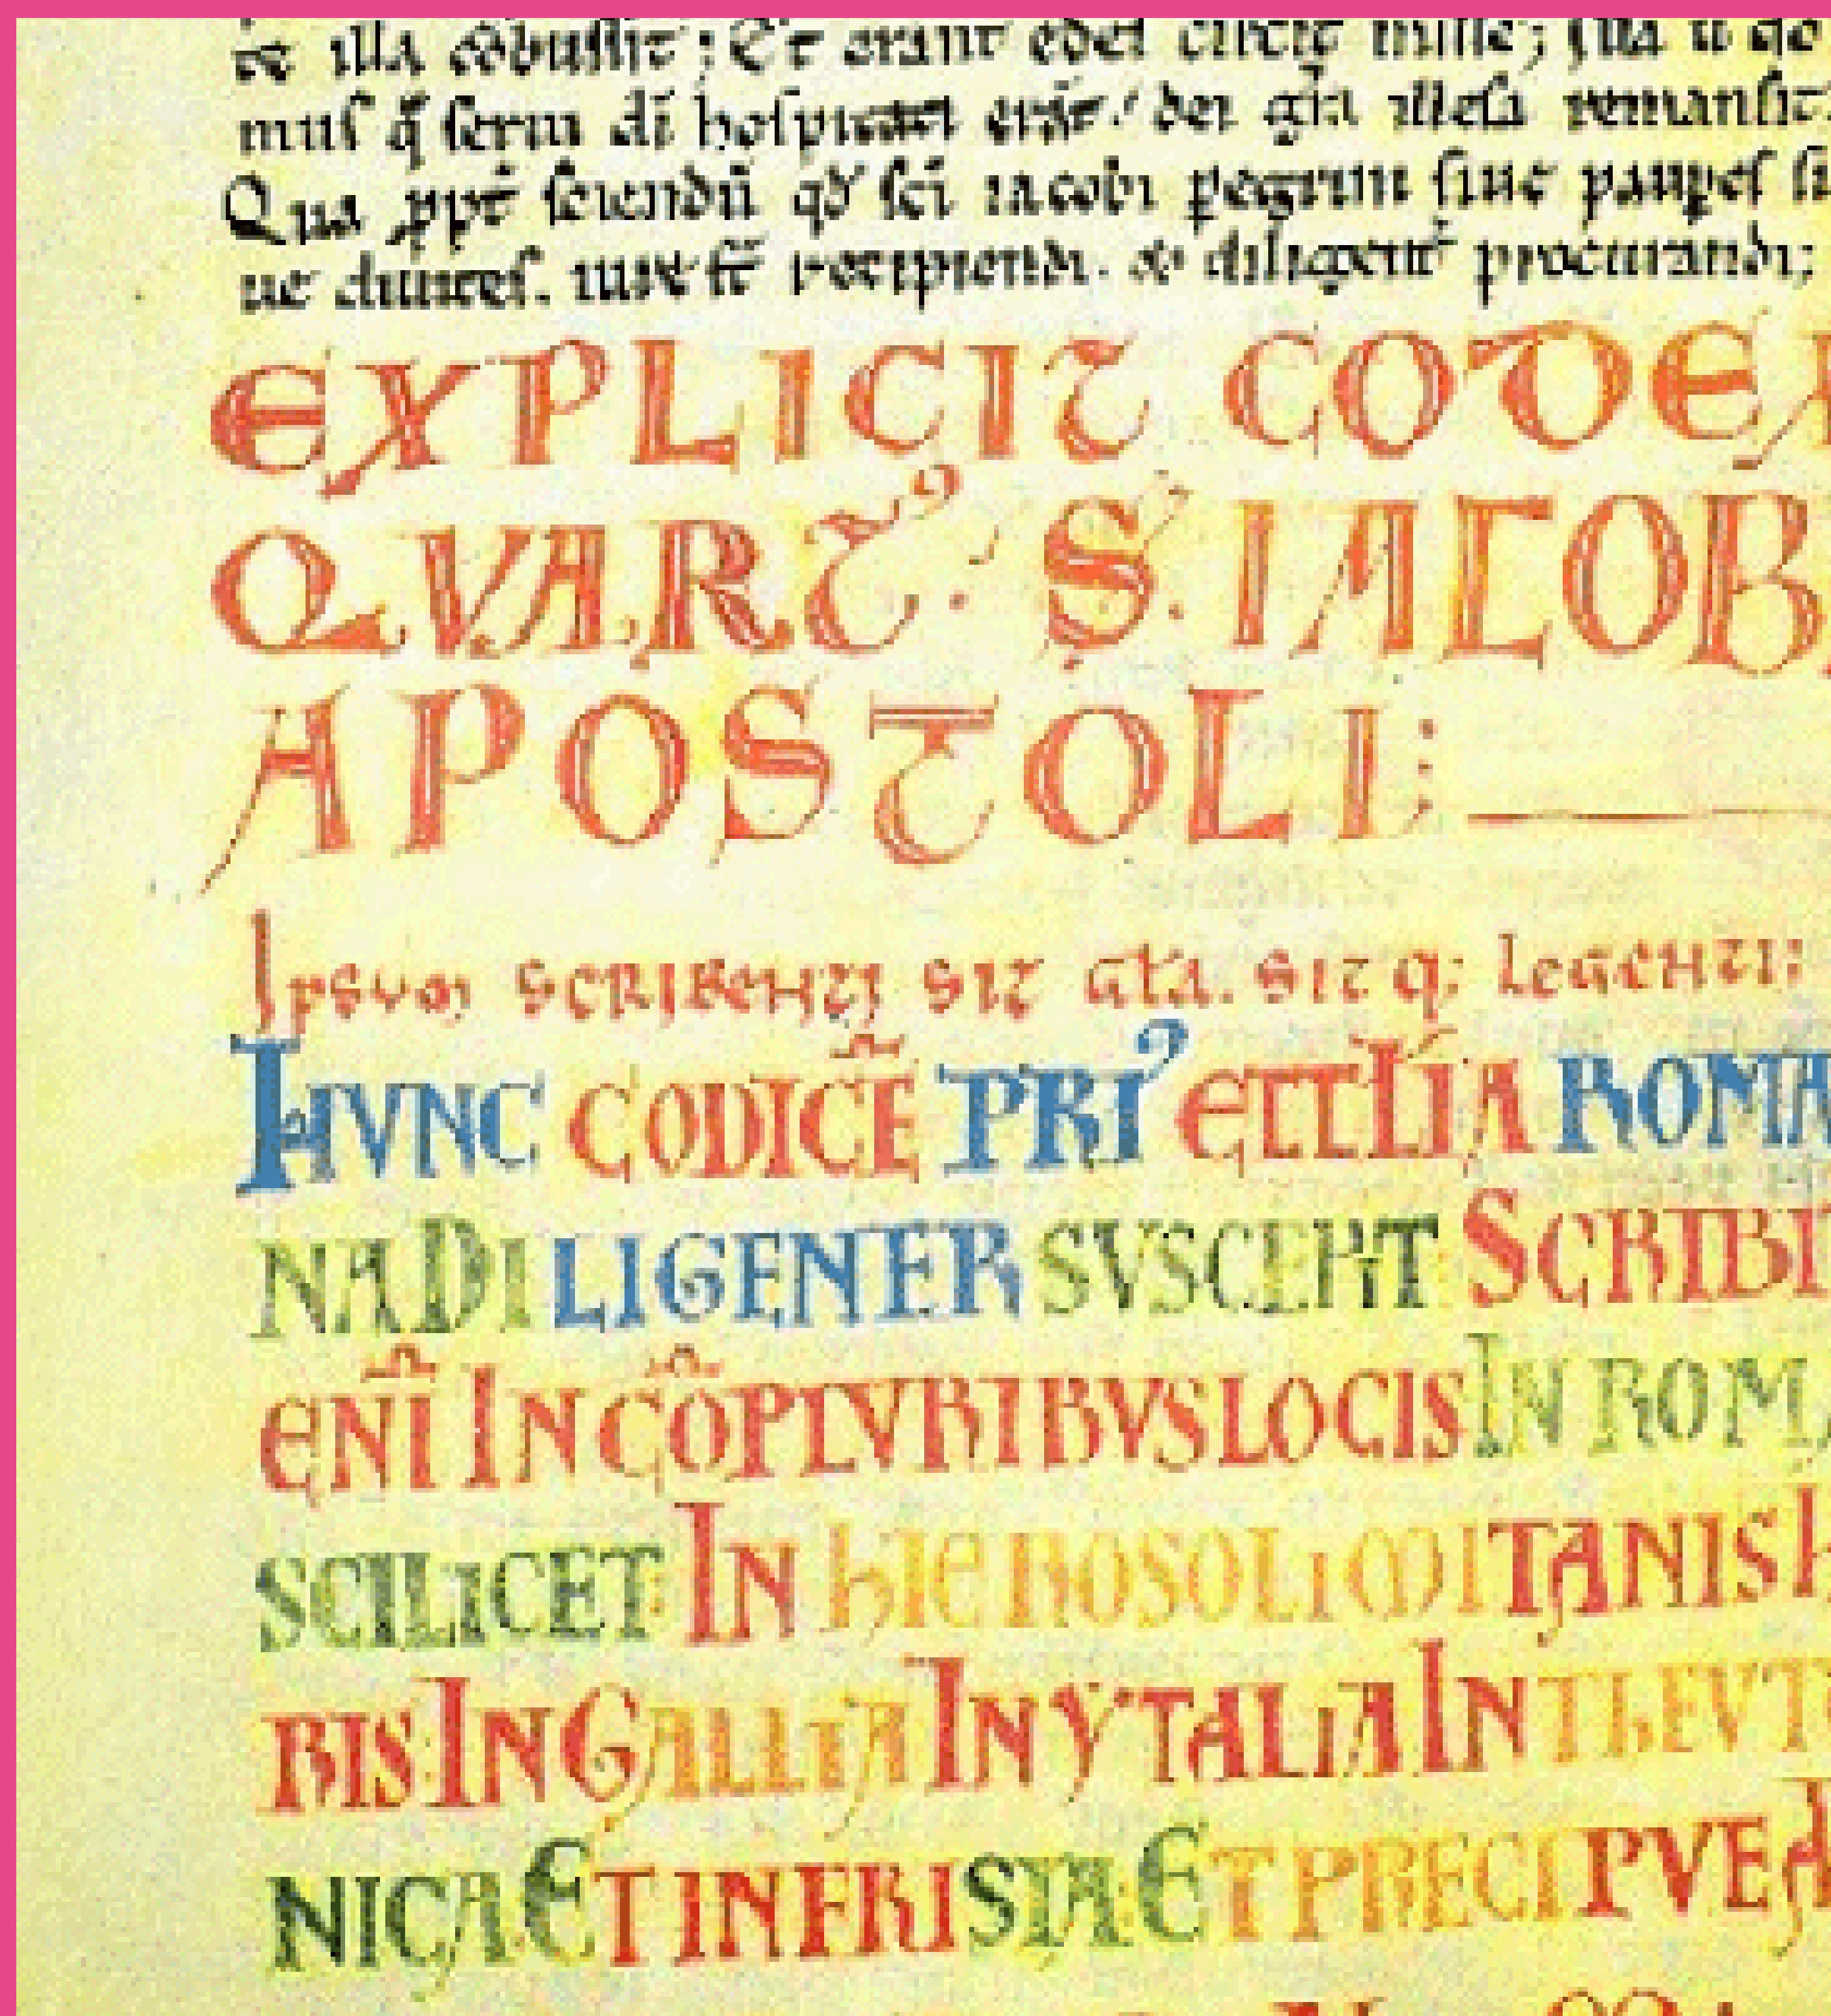 illa cōbussit; Et erant edes circit mille;
mus q̄ serui di hospitati erāt, dei gr̄a illesa remansit
Qua ppt̄ sciendū qd̄ sc̄i iacobi peregrini siue pauperes
ue diuites. iure recipiendi. & diligent̄ procurandi;
EXPLICIT CODEX
QVARTꝰ. S. IACOB
APOSTOLI:
Ipsum SCRIBENTI SIT gl̄a. SITq; LEGENTI;
HVNC CODICĒ PRIꝰ ECCLĪA ROMA
NA DILIGENER SVSCEPIT SCRIBIT
ENĪ IN CŌPLVRIBVS LOCIS IN ROMA
SCILICET IN HIEROSOLIMITANIS
RIS IN GALLIA IN YTALIA IN THEVTO
NICA ET IN FRISIA ET PRECIPVE A